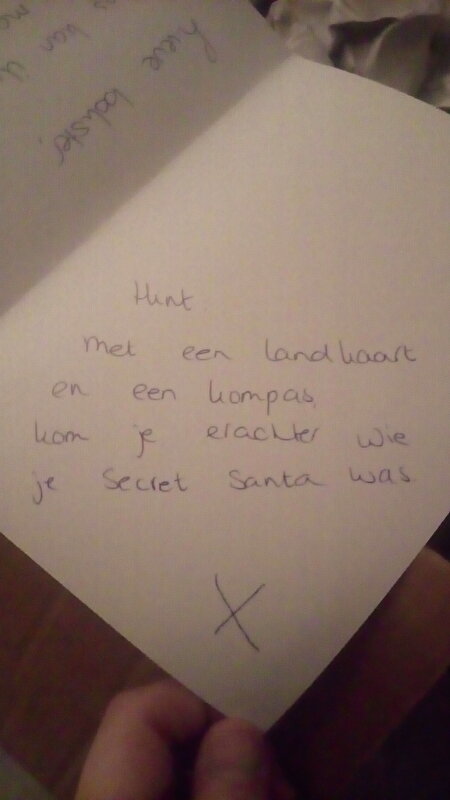 Hint
Met een landkaart
en een kompas,
kom je erachter wie
je Secret Santa was
X
lieve